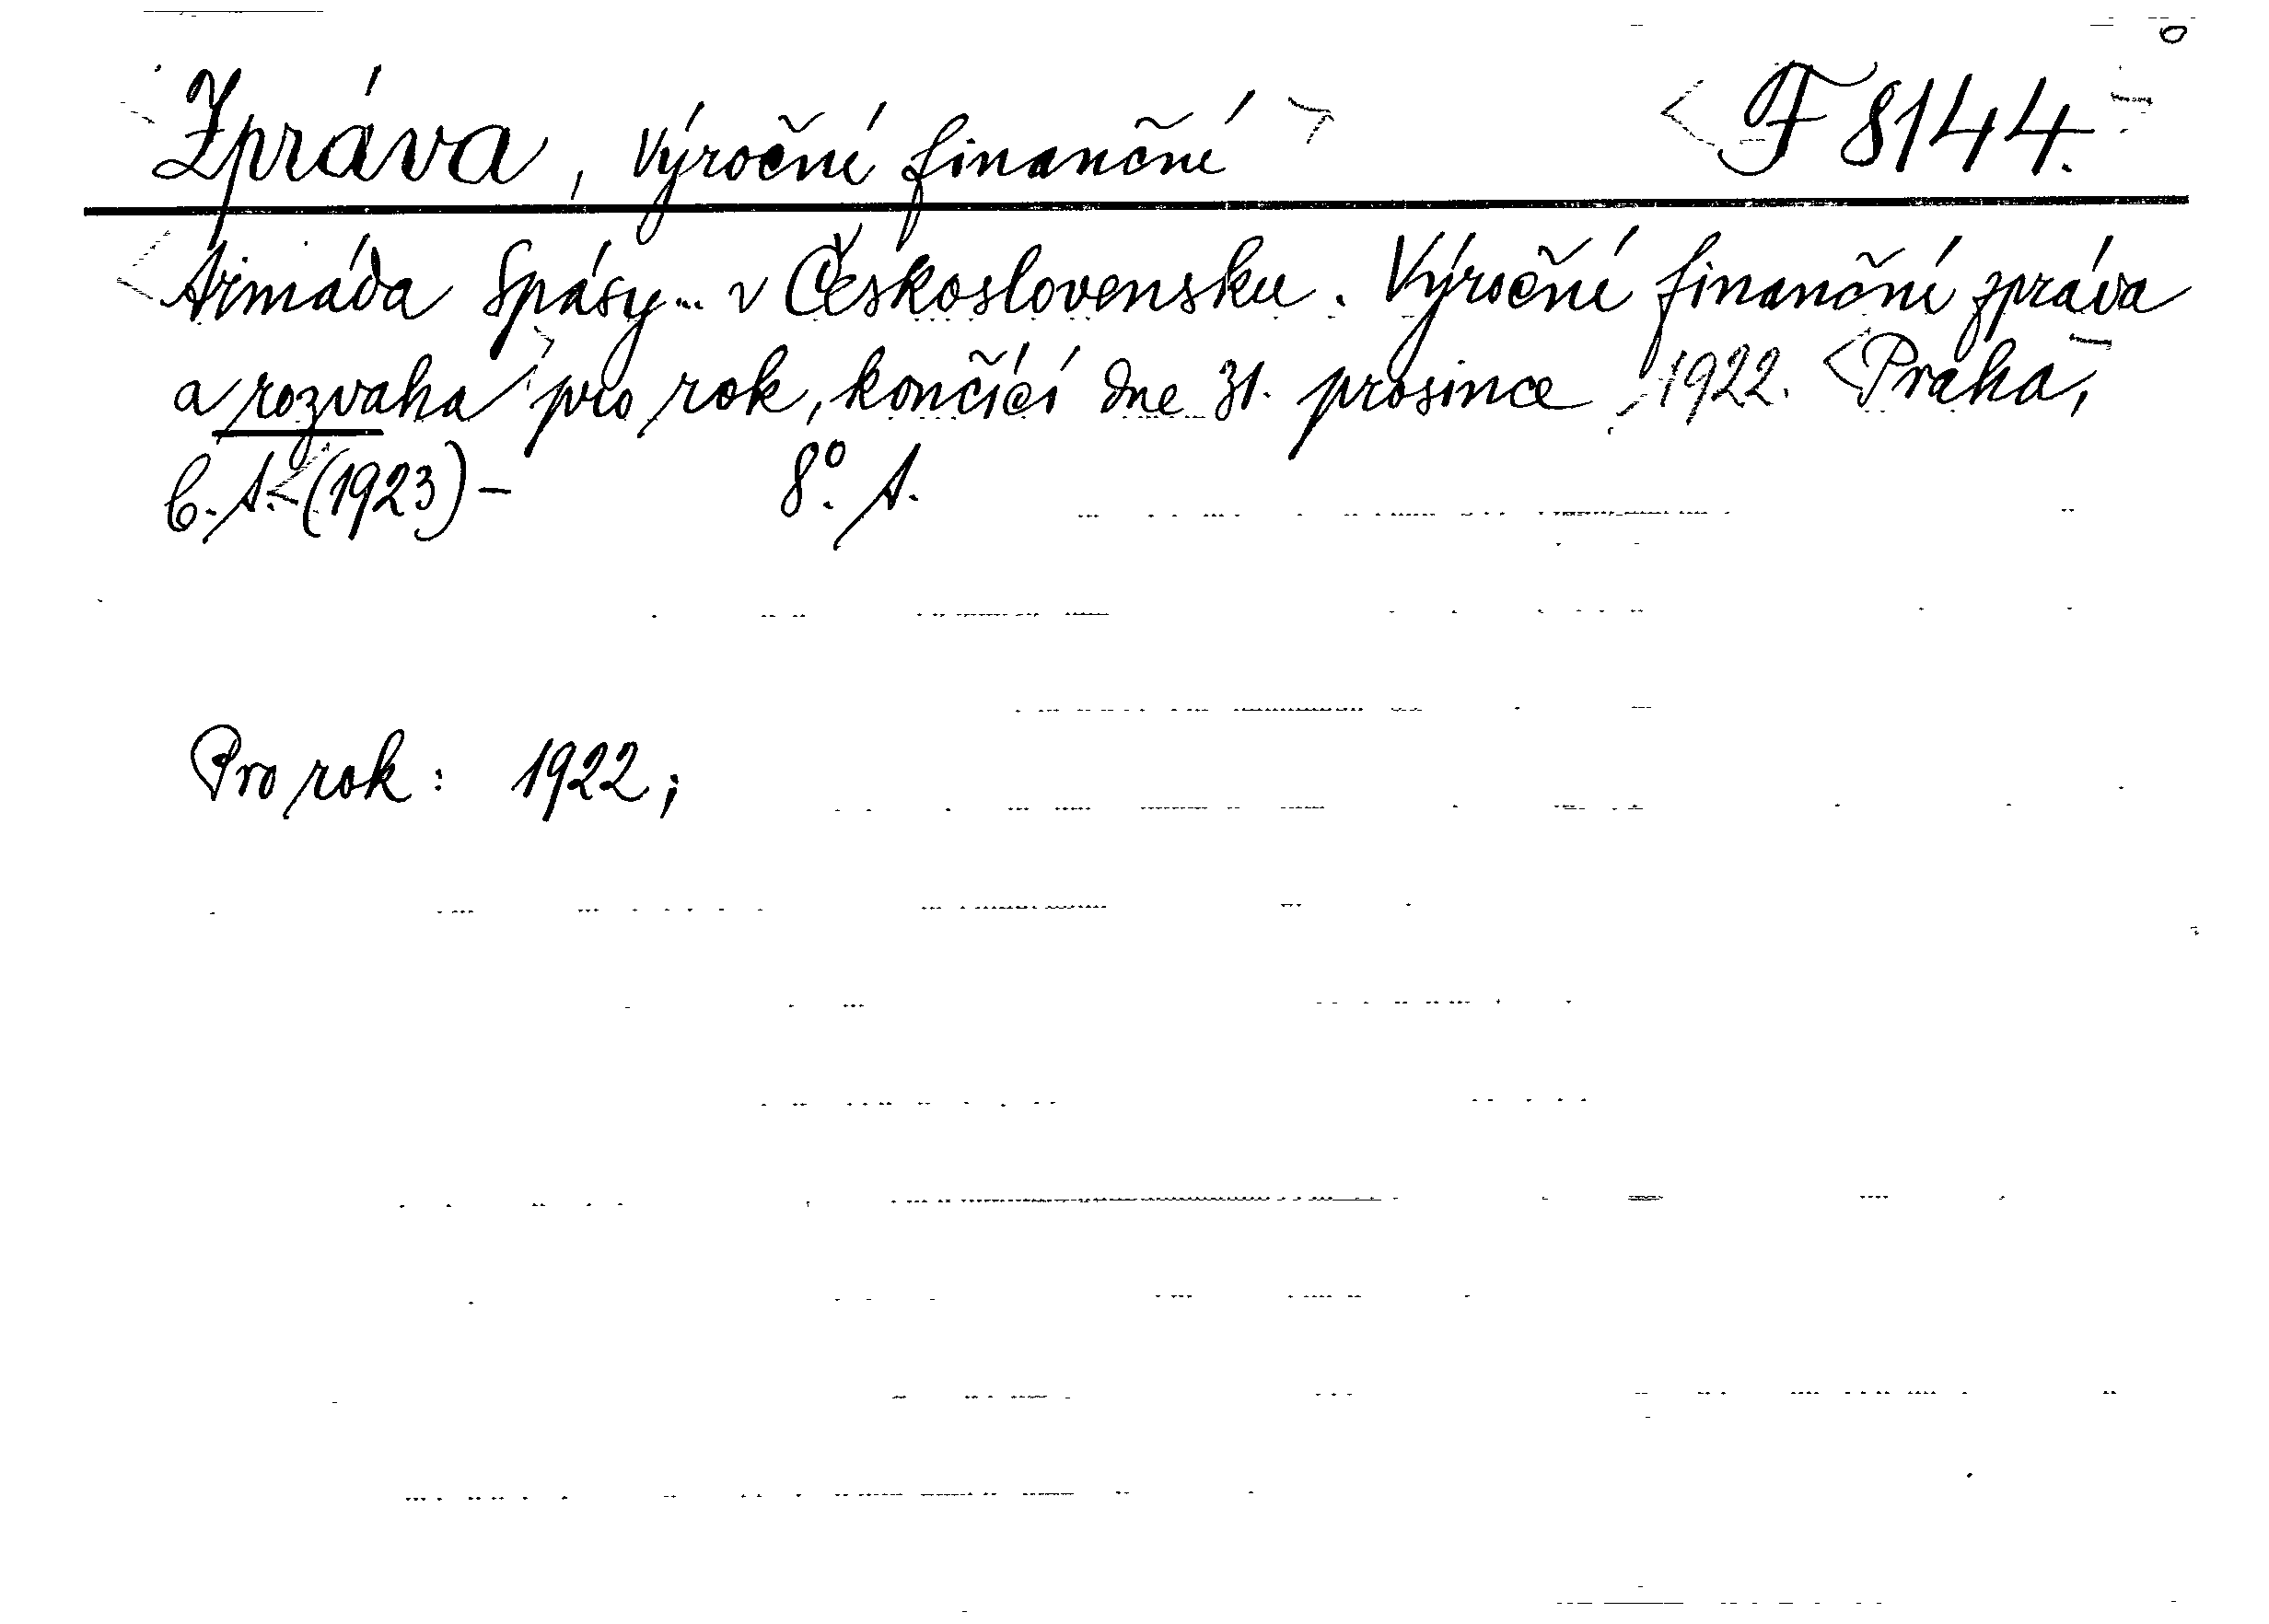 Zpráva, Výroční finanční F 8144.
Armáda Spásy... v Československu. Výroční finanční zpráva
a rozvaha pro rok, končící dne 31. prosince 1922. Praha,
b. t. (1923) - 8°. t.
Pro rok: 1922;